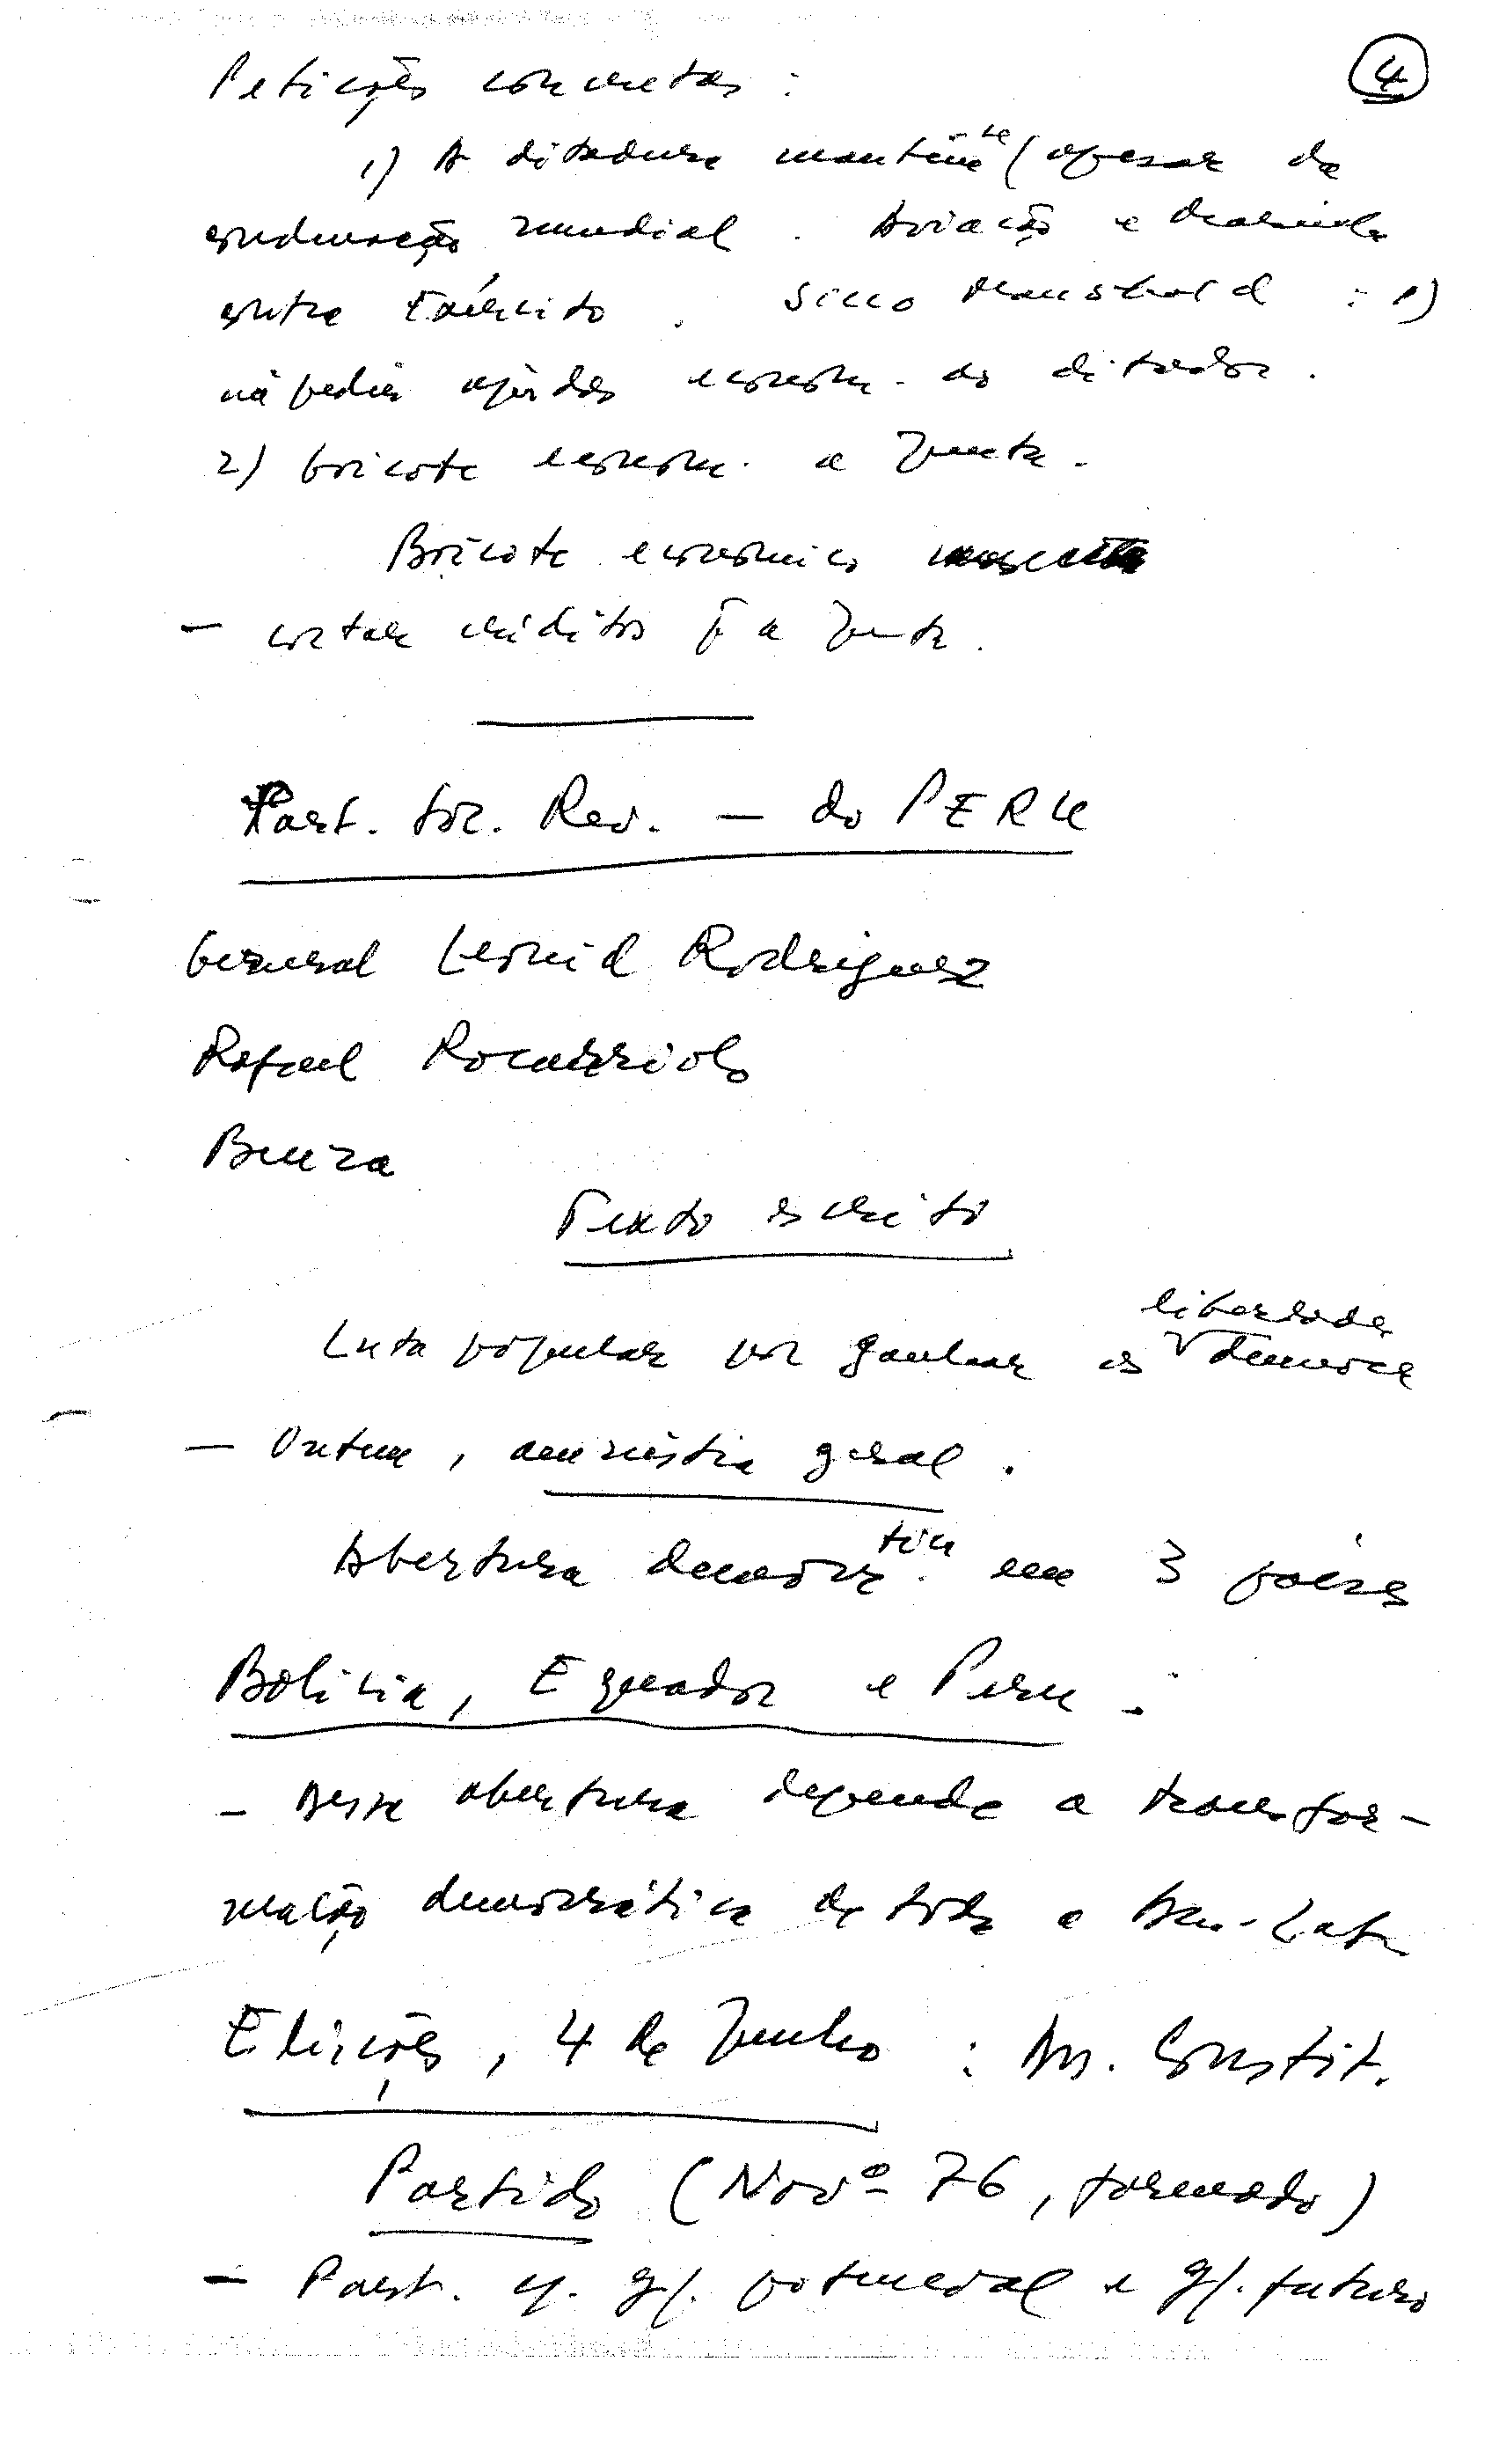 4
Petições concretas :
1) A ditadura mantém-se (apesar da
condenação mundial. Aviação e Marinha
contra Exército. Sicco Mansholt : 1)
não pedir ajudas econom. ao ditador.
2) boicote econom. a Junta.
Boicote economico
— cortar créditos p a Junta.
Part. Soc. Rev. — do PERU
General Leonid Rodriguez
Rafael Roncagliolo
Benza
Texto escrito
Luta popular por ganhar as liberdades democr
— Ontem, amnistia geral.
Abertura democrática em 3 países
Bolivia, Equador e Peru :
— Dessa abertura depende a transfor-
mação democrática de toda a Am. Lat.
Eleições, 4 de Junho : Ass. Constit.
Partido (Novº 76, formado)
— Part. c/ gr. potencial e gr. futuro